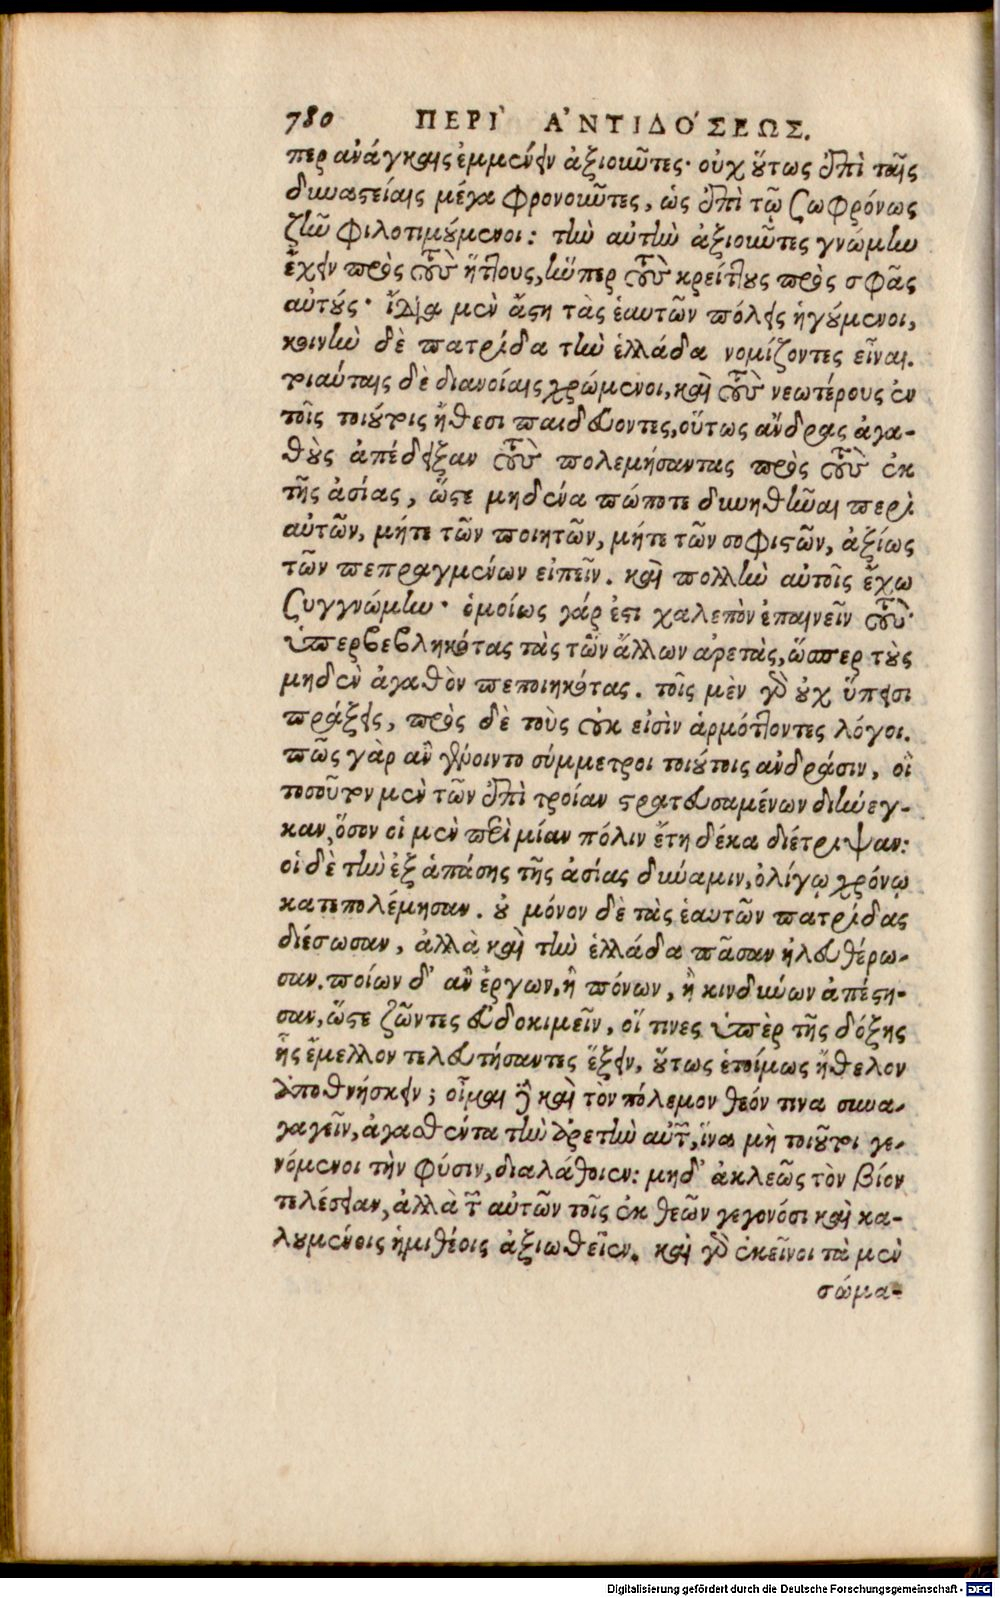 780 ΠΕΡῚ Α᾿ΝΤΙΔΟ´ΣΕΩΣ.
περ ἀνάγκαις ἐμμένειν ἀξιοιῶτες· οὐχ ὅτως ἐπὶ ταῖς
δυναστείαις μέγα φρονοιῶτες, ὡς ἐπὶ τῷ σωφρόνως
ζῆν φιλοτιμούμενοι: τὴν αὐτὴν ἀξιοιῶτες γνώμην
ἔχειν πρὸς τοὺς ἥττους, ἥνπερ τοὺς κρείττους πρὸς σφᾶς
αὐτούς· ἴδια μὲν ἄστη τὰς ἑαυτῶν πόλεις ἡγούμενοι,
κοινὴν δὲ πατρίδα τὴν ἑλλάδα νομίζοντες εἶναι.
τοιαύταις δὲ διανοίαις χρώμενοι, καὶ τοὺς νεωτέρους ἐν
τοῖς τοιούτοις ἤθεσι παιδεύοντες, οὕτως ἄνδρας ἀγα-
θοὺς ἀπέδειξαν τοὺς πολεμήσαντας πρὸς τοὺς ἐκ
τῆς ἀσίας, ὥστε μηδένα πώποτε δυνηθῆναι περὶ
αὐτῶν, μήτε τῶν ποιητῶν, μήτε τῶν σοφιστῶν, ἀξίως
τῶν πεπραγμένων εἰπεῖν. καὶ πολλὴν αὐτοῖς ἔχω
συγγνώμην· ὁμοίως γάρ ἐστι χαλεπὸν ἐπαινεῖν τοὺς
ὑπερβεβληκότας τὰς τῶν ἄλλων ἀρετὰς, ὥσπερ τοὺς
μηδὲν ἀγαθὸν πεποιηκότας. τοῖς μὲν γὰρ οὐχ ὕπεισι
πράξεις, πρὸς δὲ τοὺς οὐκ εἰσὶν ἁρμόττοντες λόγοι.
πῶς γὰρ ἂν γένοιντο σύμμετροι τοιούτοις ἀνδράσιν, οἳ
τοσοῦτον μὲν τῶν ἐπὶ τροίαν στρατευσαμένων διήνεγ-
καν, ὅσον οἱ μὲν περὶ μίαν πόλιν ἔτη δέκα διέτριψαν:
οἱ δὲ τὴν ἐξ ἁπάσης τῆς ἀσίας δύναμιν, ὀλίγῳ χρόνῳ
κατεπολέμησαν. οὐ μόνον δὲ τὰς ἑαυτῶν πατρίδας
διέσωσαν, ἀλλὰ καὶ τὴν ἑλλάδα πᾶσαν ἠλευθέρω-
σαν. ποίων δ' ἂν ἔργων, ἢ πόνων, ἢ κινδύνων ἀπέστη-
σαν, ὥστε ζῶντες εὐδοκιμεῖν, οἵ τινες ὑπὲρ τῆς δόξης
ἧς ἔμελλον τελευτήσαντες ἕξειν, οὕτως ἑτοίμως ἤθελον
ἀποθνήσκειν; οἶμαι δὲ καὶ τὸν πόλεμον θεόν τινα συνα-
γαγεῖν, ἀγασθέντα τὴν ἀρετὴν αὐτῶν, ἵνα μὴ τοιοῦτοι γε-
νόμενοι τὴν φύσιν, διαλάθοιεν: μηδ' ἀκλεῶς τὸν βίον
τελέσειαν, ἀλλὰ τῶν αὐτῶν τοῖς ἐκ θεῶν γεγονόσι καὶ κα-
λουμένοις ἡμιθέοις ἀξιωθεῖεν. καὶ γὰρ ἐκεῖνοι τὰ μὲν
σώμα-
Digitalisierung gefördert durch die Deutsche Forschungsgemeinschaft - DFG